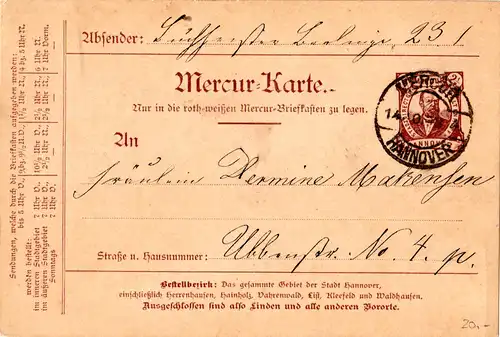 Absender: 23 I
Mercur-Karte.
Nur in die roth-weißen Mercur-Briefkasten zu legen.
HANNOVER
An
Fräulein Hermine Makensen
Straße u. Hausnummer: Ubbenstr. No. 4. p.
Bestellbezirk: Das gesammte Gebiet der Stadt Hannover,
einschließlich Herrenhausen, Hainholz, Vahrenwald, List, Kleefeld und Waldhausen.
Ausgeschlossen sind also Linden und alle anderen Vororte.
20,-
Sendungen, welche durch die Briefkasten aufgegeben werden:
werden bestellt:
im inneren Stadtgebiet
im äußeren Stadtgebiet
Sonntags